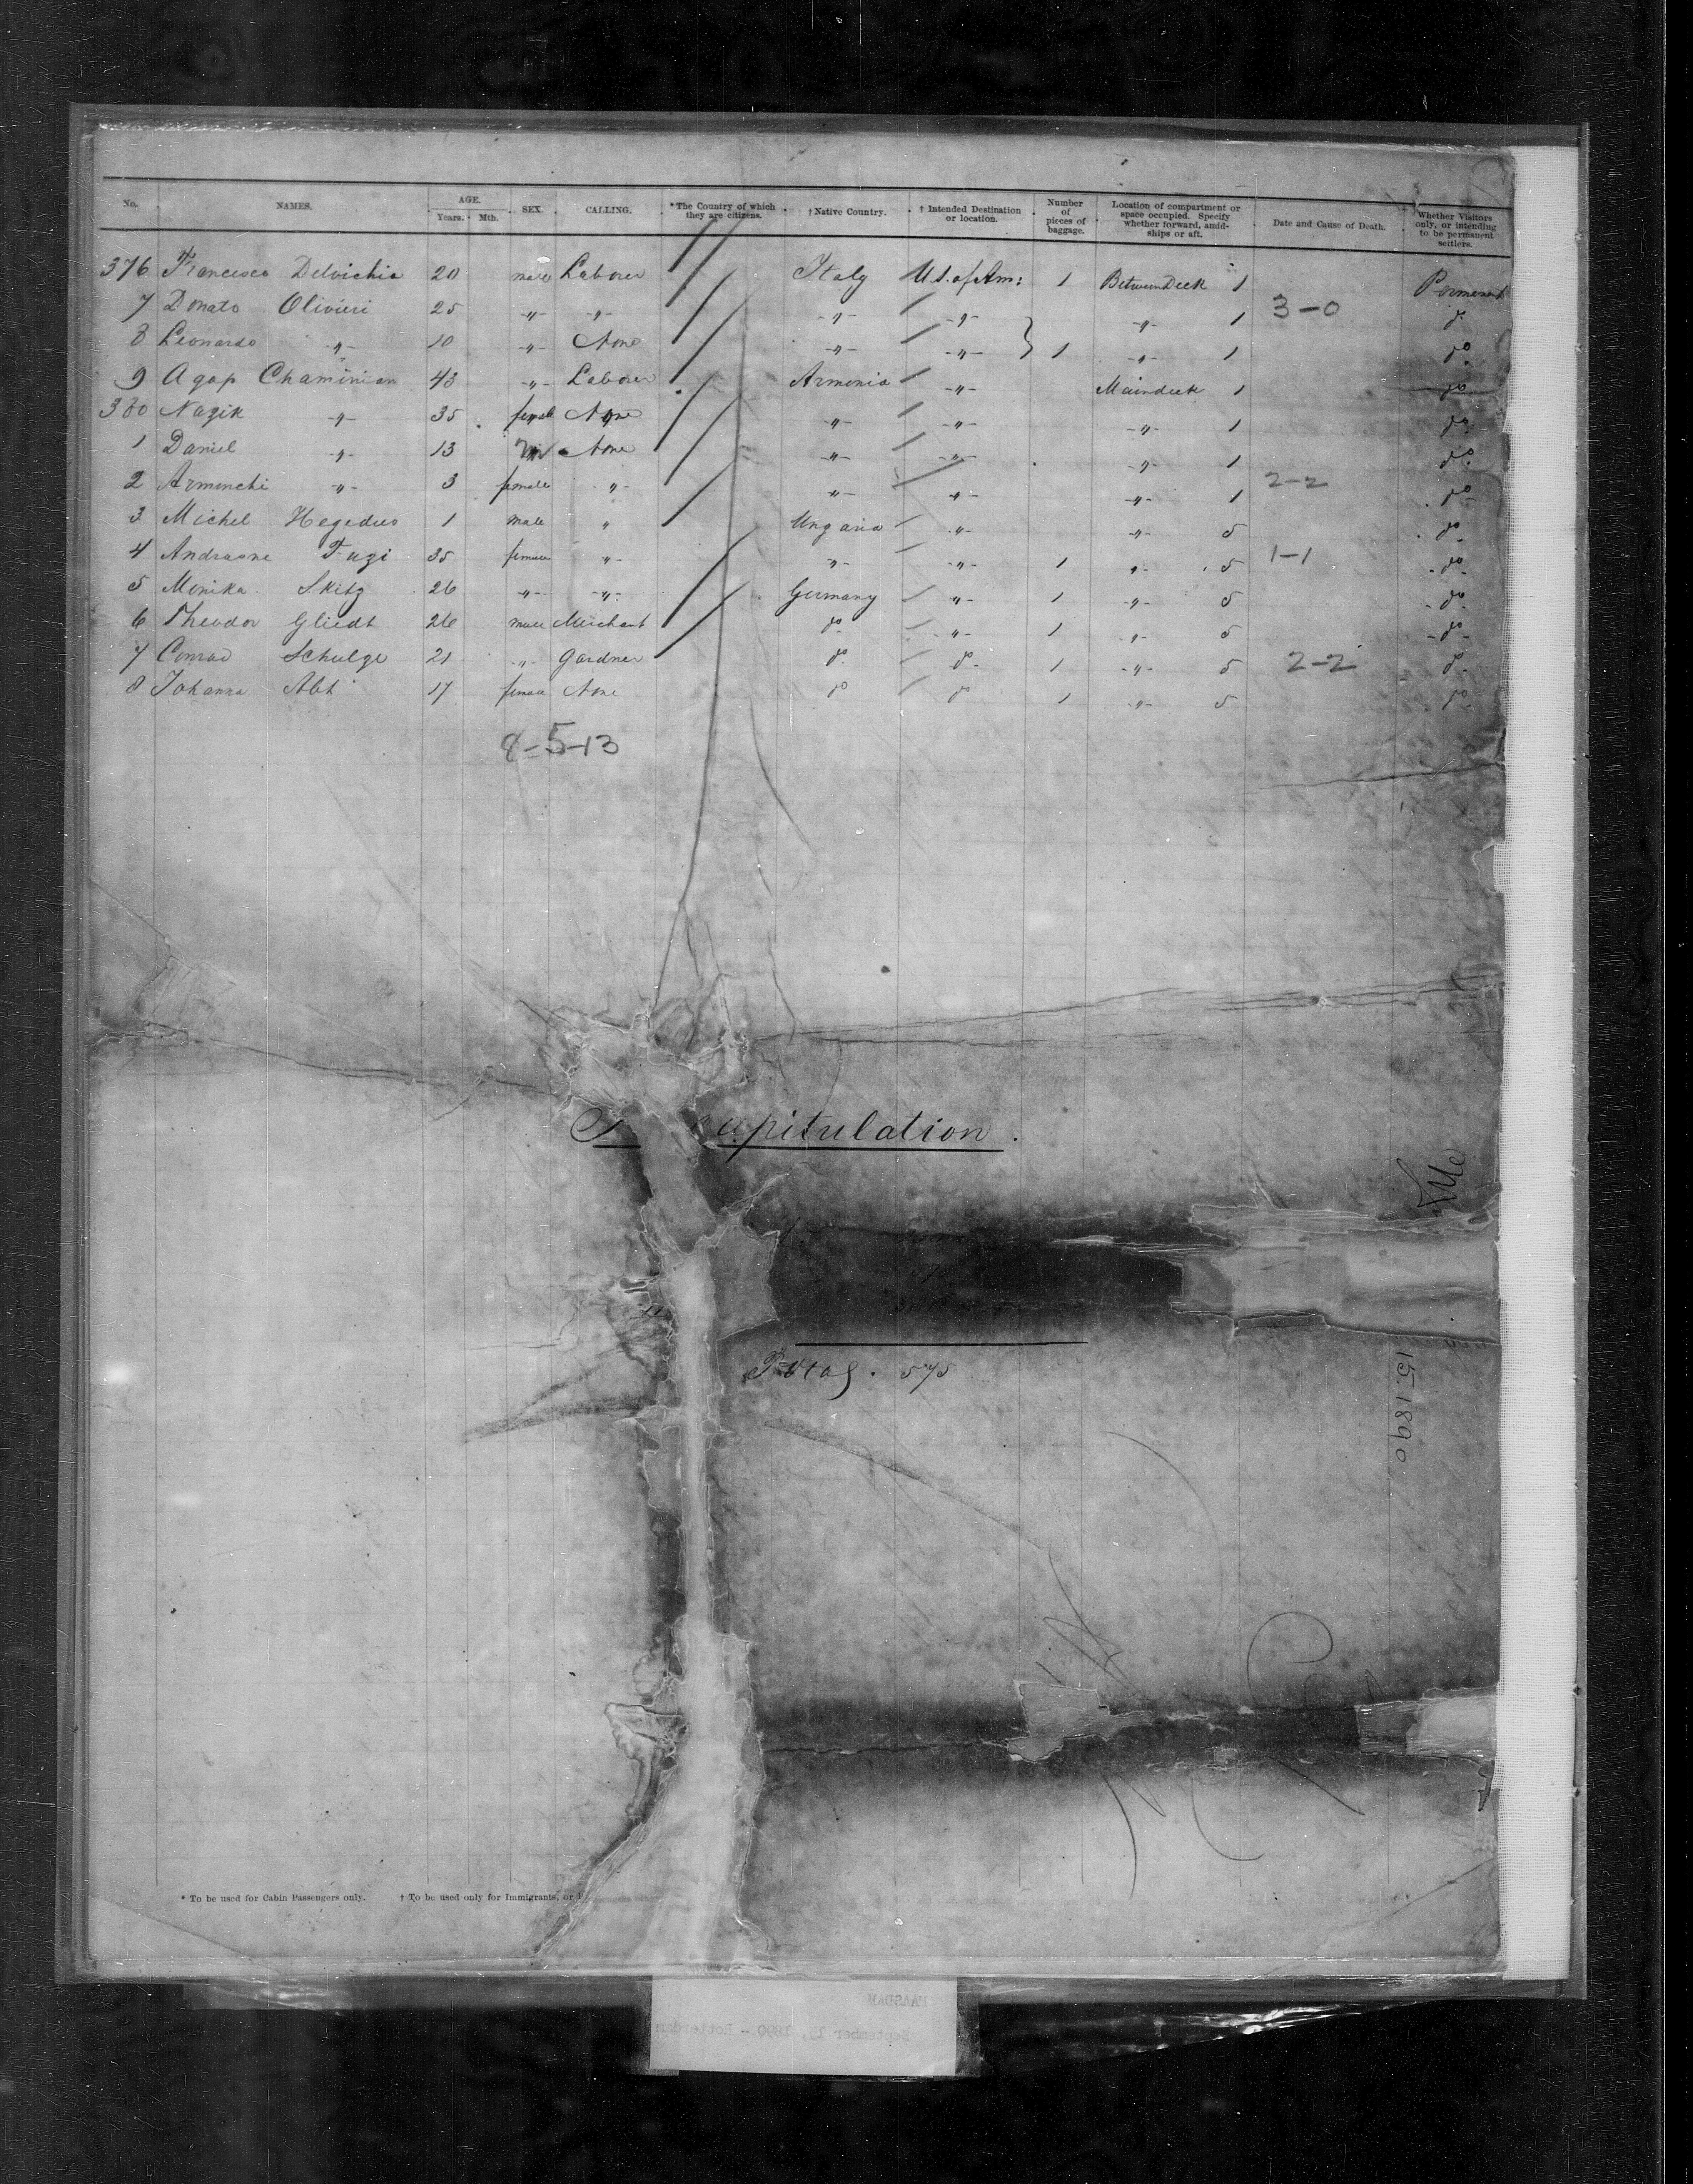 No. NAMES. AGE. Years. Mth. SEX. CALLING. *The Country of which they are citizens. †Native Country. †Intended Destination or location. Number of pieces of baggage. Location of compartment or space occupied. Specify whether forward, amidships or aft. Date and Cause of Death. Whether Visitors only, or intending to be permanent settlers.
376 Francesco Delvichio 20 male Laborer Italy U.S. of Am: 1 BetweenDeck 1 Permanent
7 Donato Olivieri 25 -"- -"- -"- -"- -"- 1 3-0 do
8 Leonardo -"- 10 -"- None -"- -"- 1 -"- 1 do
9 Agop Chaminian 43 -"- Laborer Armenia -"- Maindeck 1 do
380 Nazik -"- 35 female None -"- -"- -"- 1 do
1 Daniel -"- 13 None -"- -"- -"- 1 do
2 Armenchi -"- 3 female -"- -"- -"- -"- 1 2-2 do
3 Michel Hegedus 1 male " Ungaria -"- -"- 5 do
4 35 female -"- -"- -"- 1 -"- 5 1-1 do
5 Monika Skitz 26 -"- -"- Germany -"- 1 -"- 5 do
6 Theodor Gliedt 26 male Merchant do -"- 1 -"- 5 do
7 Conrad Schulze 21 -"- Gardner do do 1 -"- 5 2-2 do
8 Johanna Abt 17 female None do do 1 -"- 5 do
8-5-13
capitulation.
Total. 575
15. 1890
* To be used for Cabin Passengers only. † To be used only for Immigrants, or
MAASDAM
September 15, 1890 - Rotterdam